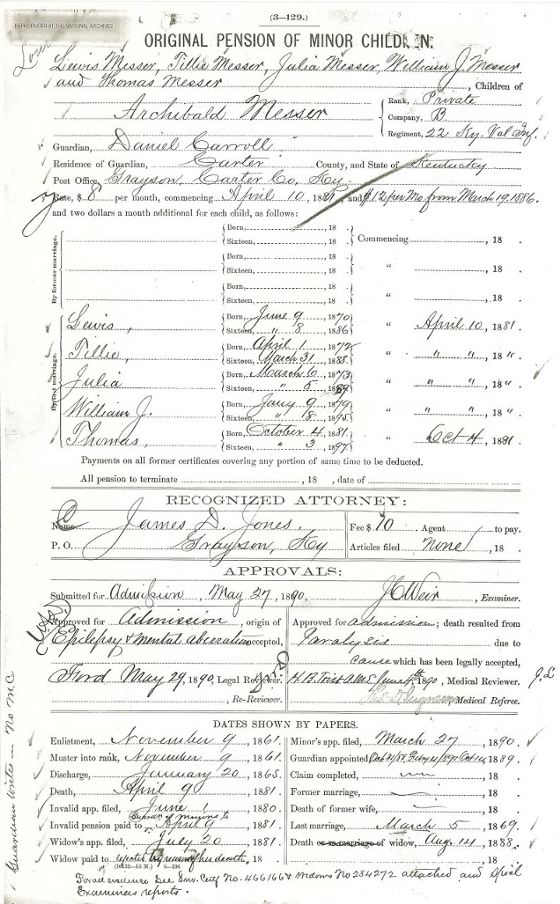 REPRODUCED AT THE NATIONAL ARCHIVES
(3—129.)
ORIGINAL PENSION OF MINOR CHILDREN.
Lewis Messer, Tillie Messer, Julia Messer, William J. Messer
and Thomas Messer, Children of
Archibald Messer
Rank, Private
Company, B
Regiment, 22 Ky. Vol Inf.
Guardian, Daniel Carroll
Residence of Guardian, Carter County, and State of Kentucky
Post Office, Grayson, Carter Co, Ky.
Rate, $ 8 per month, commencing April 10, 1881, and $12 per Mo from March 19, 1886.
and two dollars a month additional for each child, as follows:
By former marriage.
Born, , 18 Commencing , 18
Sixteen, , 18
Born, , 18 " , 18
Sixteen, , 18
Born, , 18 " , 18
Sixteen, , 18
By last marriage.
Lewis, Born, June 9, 1870 " April 10, 1881.
Sixteen, " 8, 1886
Tillie, Born, April 1, 1872 " " ", 18 "
Sixteen, March 31, 1888.
Julia Born, March 6, 1873 " " ", 18 "
Sixteen, " 5, 1889
William J. Born, Jany 9, 1879 " " ", 18 "
Sixteen, " 8, 1895
Thomas, Born, October 4, 1881. " Oct 4, 1881
Sixteen, " 3, 1897
Payments on all former certificates covering any portion of same time to be deducted.
All pension to terminate , 18 , date of
RECOGNIZED ATTORNEY:
Name James D. Jones. Fee $ 10 Agent to pay.
P. O. Grayson, Ky Articles filed None, 18 .
APPROVALS:
Submitted for Admission May 27, 1890, J.C. Weir, Examiner.
Approved for Admission, origin of
Epilepsy & Mental aberation accepted,
Approved for admission; death resulted from
Paralysis due to
cause which has been legally accepted.
Ford May 29, 1890, Legal Reviewer.
, Re-Reviewer.
June 1890, Medical Reviewer.
, Medical Referee.
J.L
DATES SHOWN BY PAPERS.
Enlistment, November 9, 1861.
Muster into rank, November 9, 1861.
Discharge, January 20, 1865.
Death, April 9, 1881.
Invalid app. filed, June 1, 1880.
Invalid pension paid to April 9, 1881.
Widow's app. filed, July 20, 1881.
Widow paid to death, 18
Minor's app. filed, March 27, 1890.
Guardian appointed, 1889.
Claim completed, , 18 .
Former marriage, , 18 .
Death of former wife, , 18 .
Last marriage, March 5, 1869.
Death or remarriage of widow, Aug 14, 1888.
For all evidence See Inv. Certf No. 466166 & Widows No 284272 attached and Special
Examiners reports.
Guardian writes in No M.C